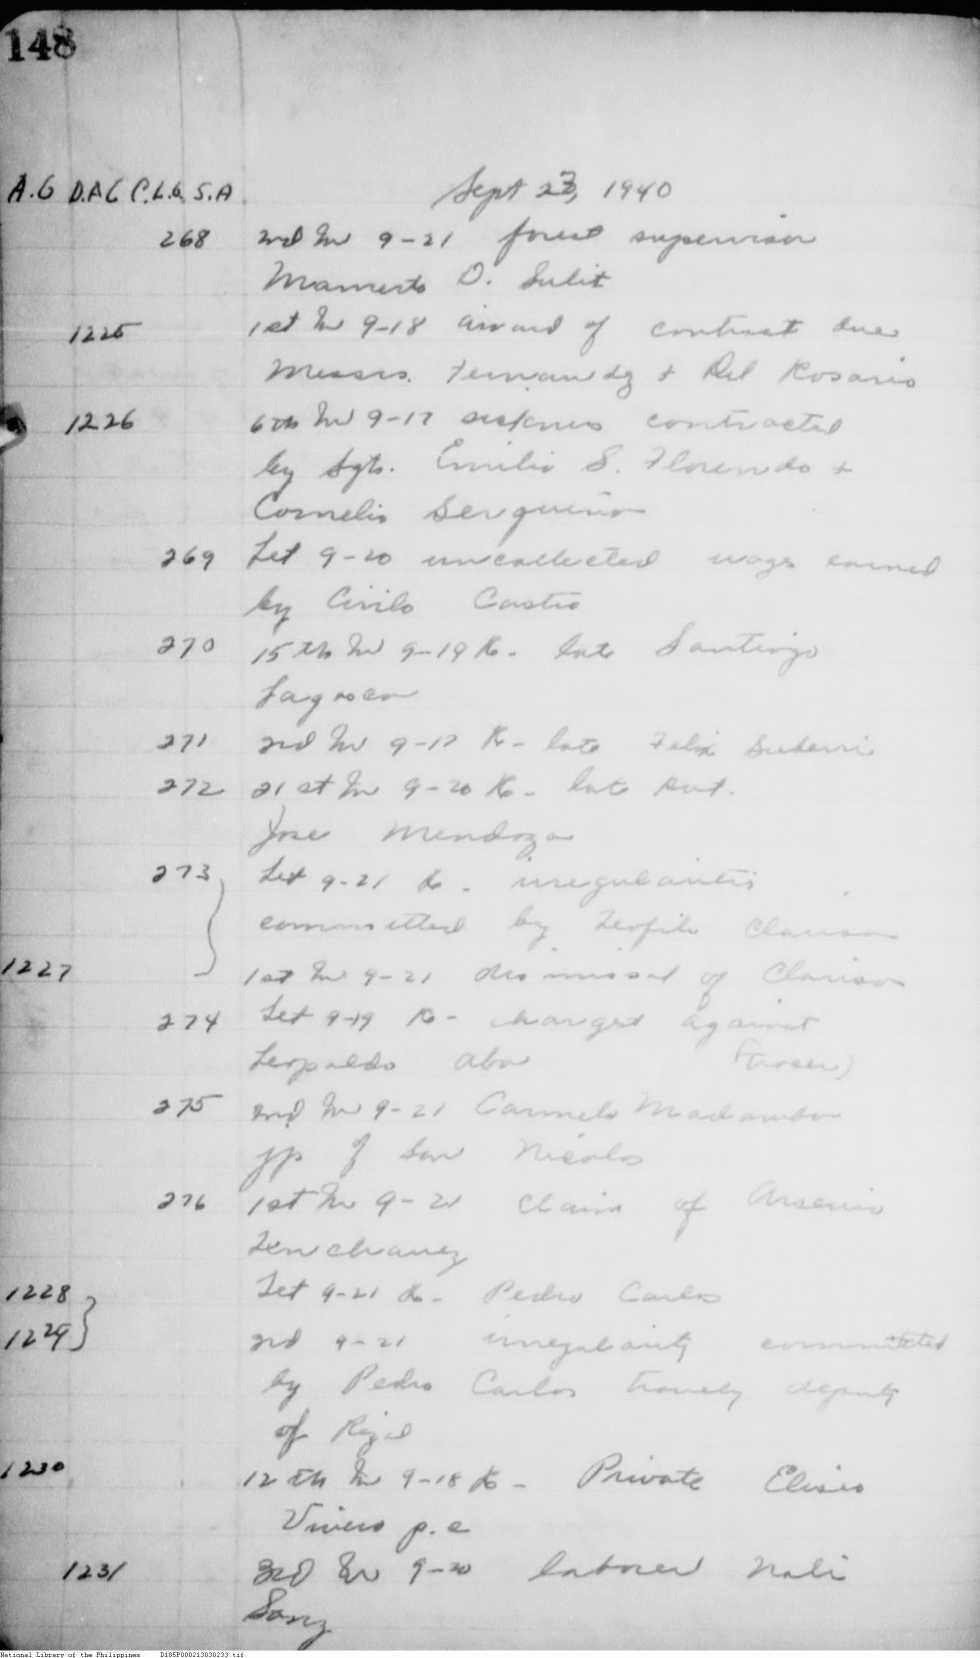 148
A.G D.A.C P.L.G. S.A
Sept 23, 1940
268 2nd In 9-21 forest supervisor
Mamerto D. Sulit
1225 1st In 9-18 award of contract due
Messrs. Fernandez + Del Rosario
1226 6th In 9-17 sickness contracted
by Sgts. Emilio S. Florendo +
Cornelio
269 Let 9-20 uncollected wage earned
by Cirilo Castro
270 15th In 9-19 Re- late Santiago
271 2nd In 9-17 Re- late Felix
272 21st In 9-20 Re- late
Jose Mendoza
273 Let 9-21 Re - irregularities
committed by Teofilo
1227 1st In 9-21 dismissal of
274 Let 9-19 Re - charges against
Leopoldo
275 2nd In 9-21 Carmelo
jp of San Nicolas
276 1st In 9-21 Claim of Arsenio
1228 Let 9-21 Re- Pedro Carlos
1229 2nd 9-21 irregularity committed
by Pedro Carlos deputy
of Rizal
1230 12th In 9-18 Re - Private Eliseo
Vivero p.c
1231 3rd In 9-20 laborer
National Library of the Philippines D185P000213030233.tif